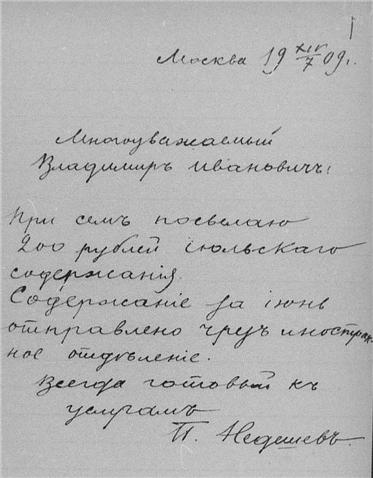 Москва 19 XIV/7 09 г.
Многоуважаемый
Владимиръ Ивановичъ!
При семъ посылаю
200 рублей іюльскаго
содержанія.
Содержаніе за іюнь
отправлено чрезъ иностран-
ное отдѣленіе.
Всегда готовый къ
услугамъ
П.